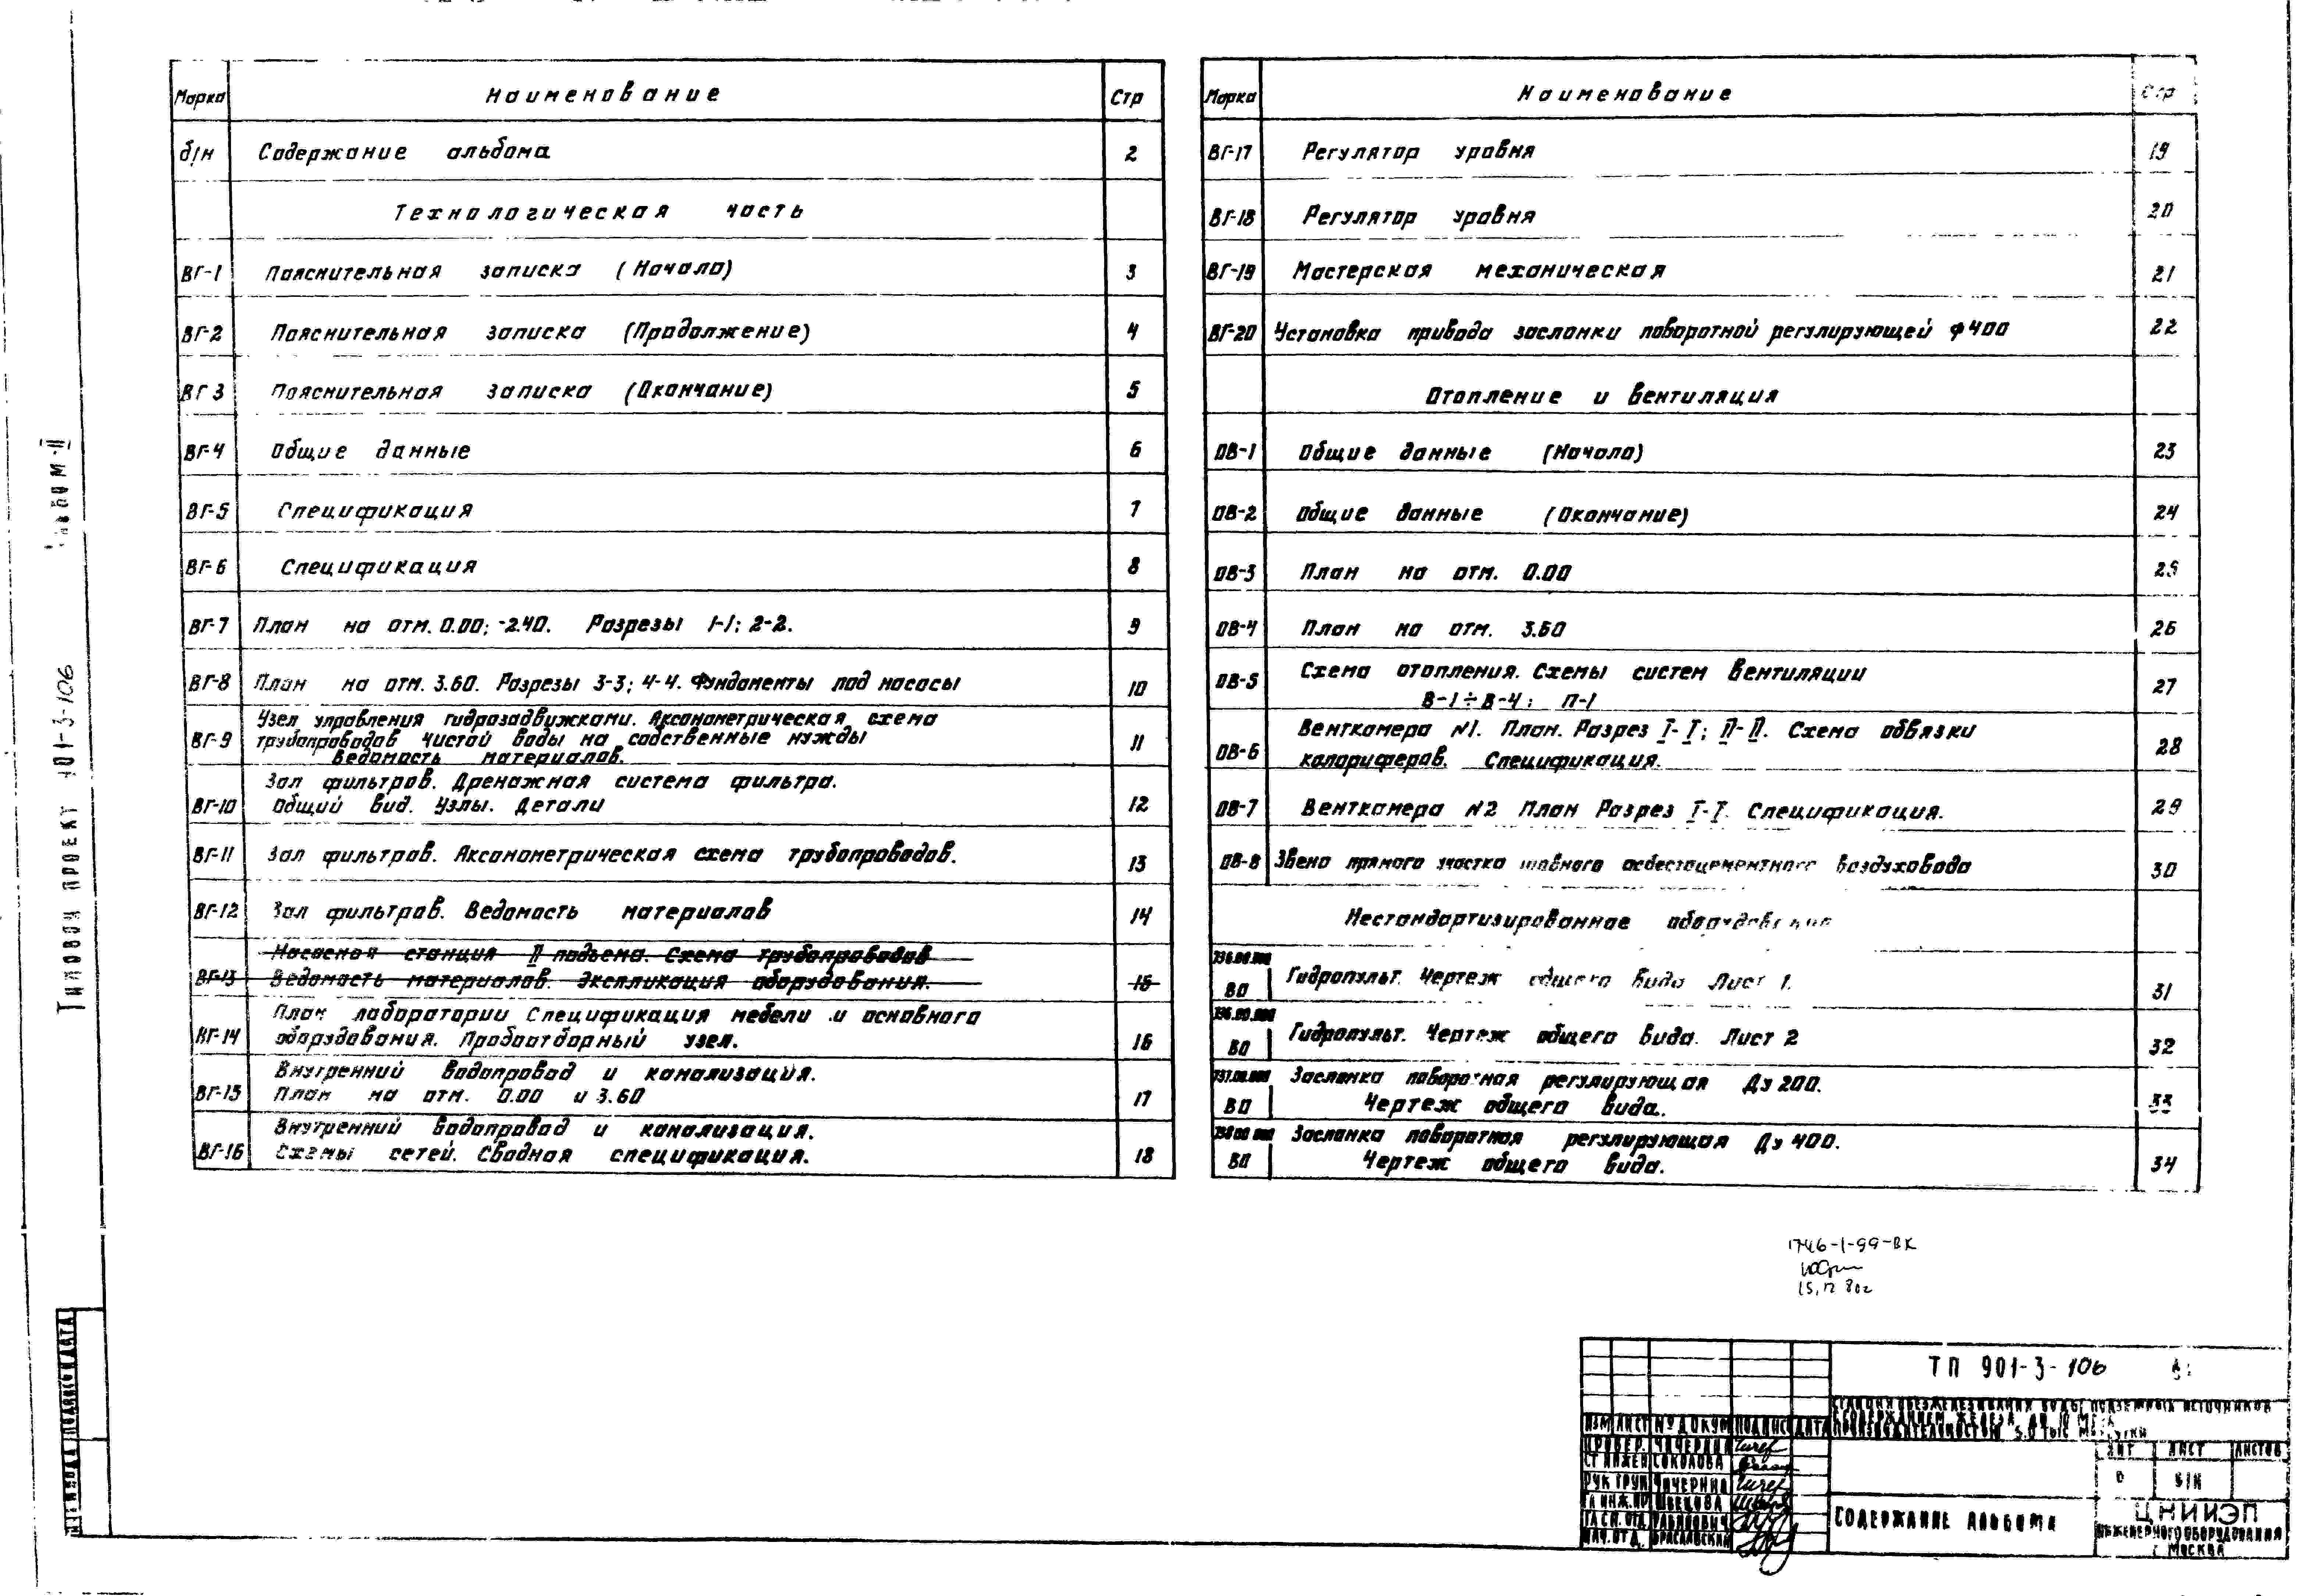 Марка Наименование Стр
б/н Содержание альбома 2
Технологическая часть
ВГ-1 Пояснительная записка (Начало) 3
ВГ-2 Пояснительная записка (Продолжение) 4
ВГ 3 Пояснительная записка (Окончание) 5
ВГ-4 Общие данные 6
ВГ-5 Спецификация 7
ВГ-6 Спецификация 8
ВГ-7 План на отм. 0.00; -2.40. Разрезы 1-1; 2-2. 9
ВГ-8 План на отм. 3.60. Разрезы 3-3; 4-4. Фундаменты под насосы 10
Узел управления гидрозадвижками. Аксонометрическая схема
ВГ-9 трубопроводов чистой воды на собственные нужды 11
Ведомость материалов.
Зал фильтров. Дренажная система фильтра.
ВГ-10 Общий вид. Узлы. Детали 12
ВГ-11 Зал фильтров. Аксонометрическая схема трубопроводов. 13
ВГ-12 Зал фильтров. Ведомость материалов 14
Насосная станция II подъема. Схема трубопроводов
ВГ-13 Ведомость материалов. Экспликация оборудования. 15
План лаборатории Спецификация мебели и основного
ВГ-14 оборудования. Пробоотборный узел. 16
Внутренний водопровод и канализация.
ВГ-15 План на отм. 0.00 и 3.60 17
Внутренний водопровод и канализация.
ВГ-16 Схемы сетей. Сводная спецификация. 18
Марка Наименование Стр
ВГ-17 Регулятор уровня 19
ВГ-18 Регулятор уровня 20
ВГ-19 Мастерская механическая 21
ВГ-20 Установка привода заслонки поворотной регулирующей ф 400 22
Отопление и вентиляция
ОВ-1 Общие данные (Начало) 23
ОВ-2 Общие данные (Окончание) 24
ОВ-3 План на отм. 0.00 25
ОВ-4 План на отм. 3.60 26
Схема отопления. Схемы систем вентиляции
ОВ-5 В-1÷В-4; П-1 27
Венткамера N1. План. Разрез I-I; II-II. Схема обвязки
ОВ-6 калориферов. Спецификация. 28
ОВ-7 Венткамера N2 План Разрез I-I. Спецификация. 29
ОВ-8 Звено прямого участка шовного асбестоцементного воздуховода 30
Нестандартизированное оборудование
736.00.000
ВО Гидропульт. Чертеж общего вида Лист 1. 31
736.00.000
ВО Гидропульт. Чертеж общего вида. Лист 2 32
737.00.000 Заслонка поворотная регулирующая Ду 200.
ВО Чертеж общего вида. 33
738.00.000 Заслонка поворотная регулирующая Ду 400.
ВО Чертеж общего вида. 34
Типовой проект 901-3-106 Альбом-II
1746-1-99-ВК
ТП 901-3-106
СТАНЦИЯ ОБЕЗЖЕЛЕЗИВАНИЯ ВОДЫ ПОДЗЕМНЫХ ИСТОЧНИКОВ
С СОДЕРЖАНИЕМ ЖЕЛЕЗА ДО 10 МГ/Л
ПРОИЗВОДИТЕЛЬНОСТЬЮ 5.0 ТЫС М3/СУТКИ
ИЗМ ЛИСТ № ДОКУМ ПОДПИСЬ ДАТА
ПРОВЕР. ЧИЧЕРИНА
СТ ИНЖЕН СОКОЛОВА
РУК ГРУП ЧИЧЕРИНА
ГЛ ИНЖ.ПР ШВЕЦОВА
ГЛ СП. ОТД
НАЧ. ОТД. БРАСЛАВСКИЙ
ЛИТ ЛИСТ ЛИСТОВ
Б/Н
СОДЕРЖАНИЕ АЛЬБОМА
ЦНИИЭП
ИНЖЕНЕРНОГО ОБОРУДОВАНИЯ
Г. МОСКВА